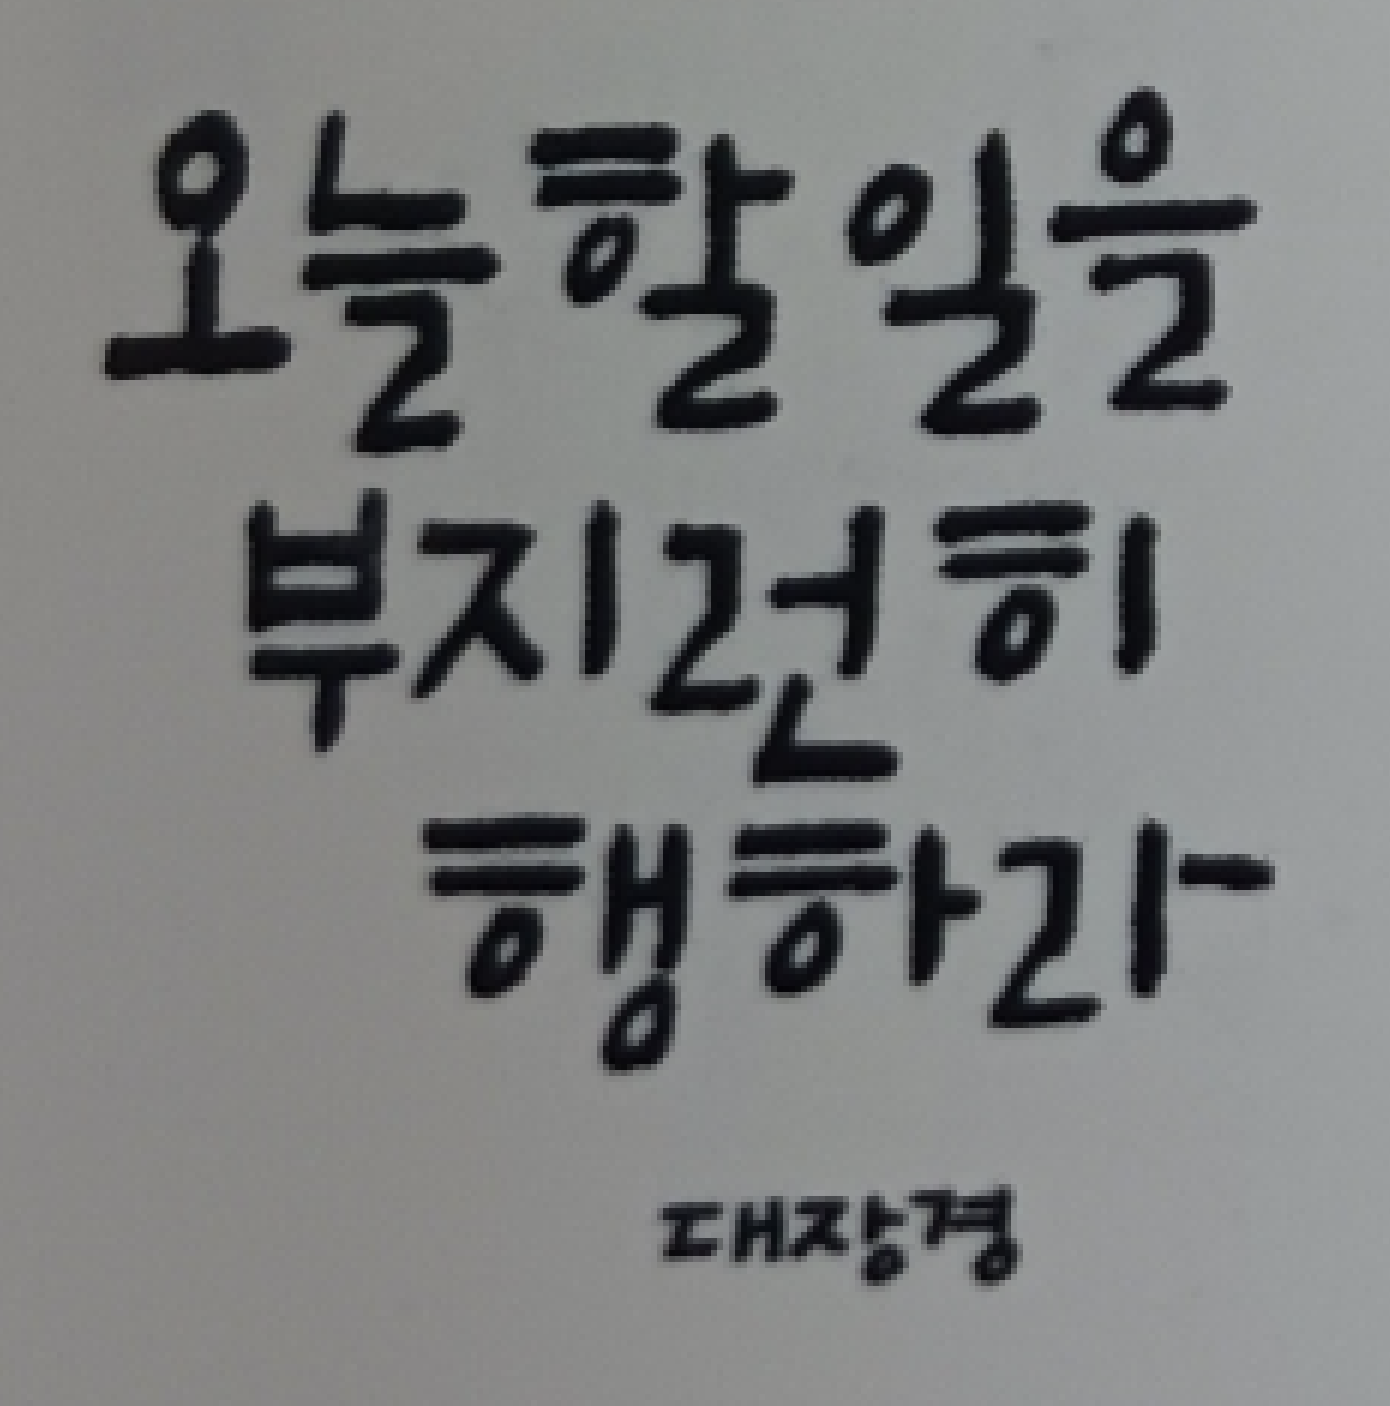 오늘 할 일을
부지런히
행하라
대장경